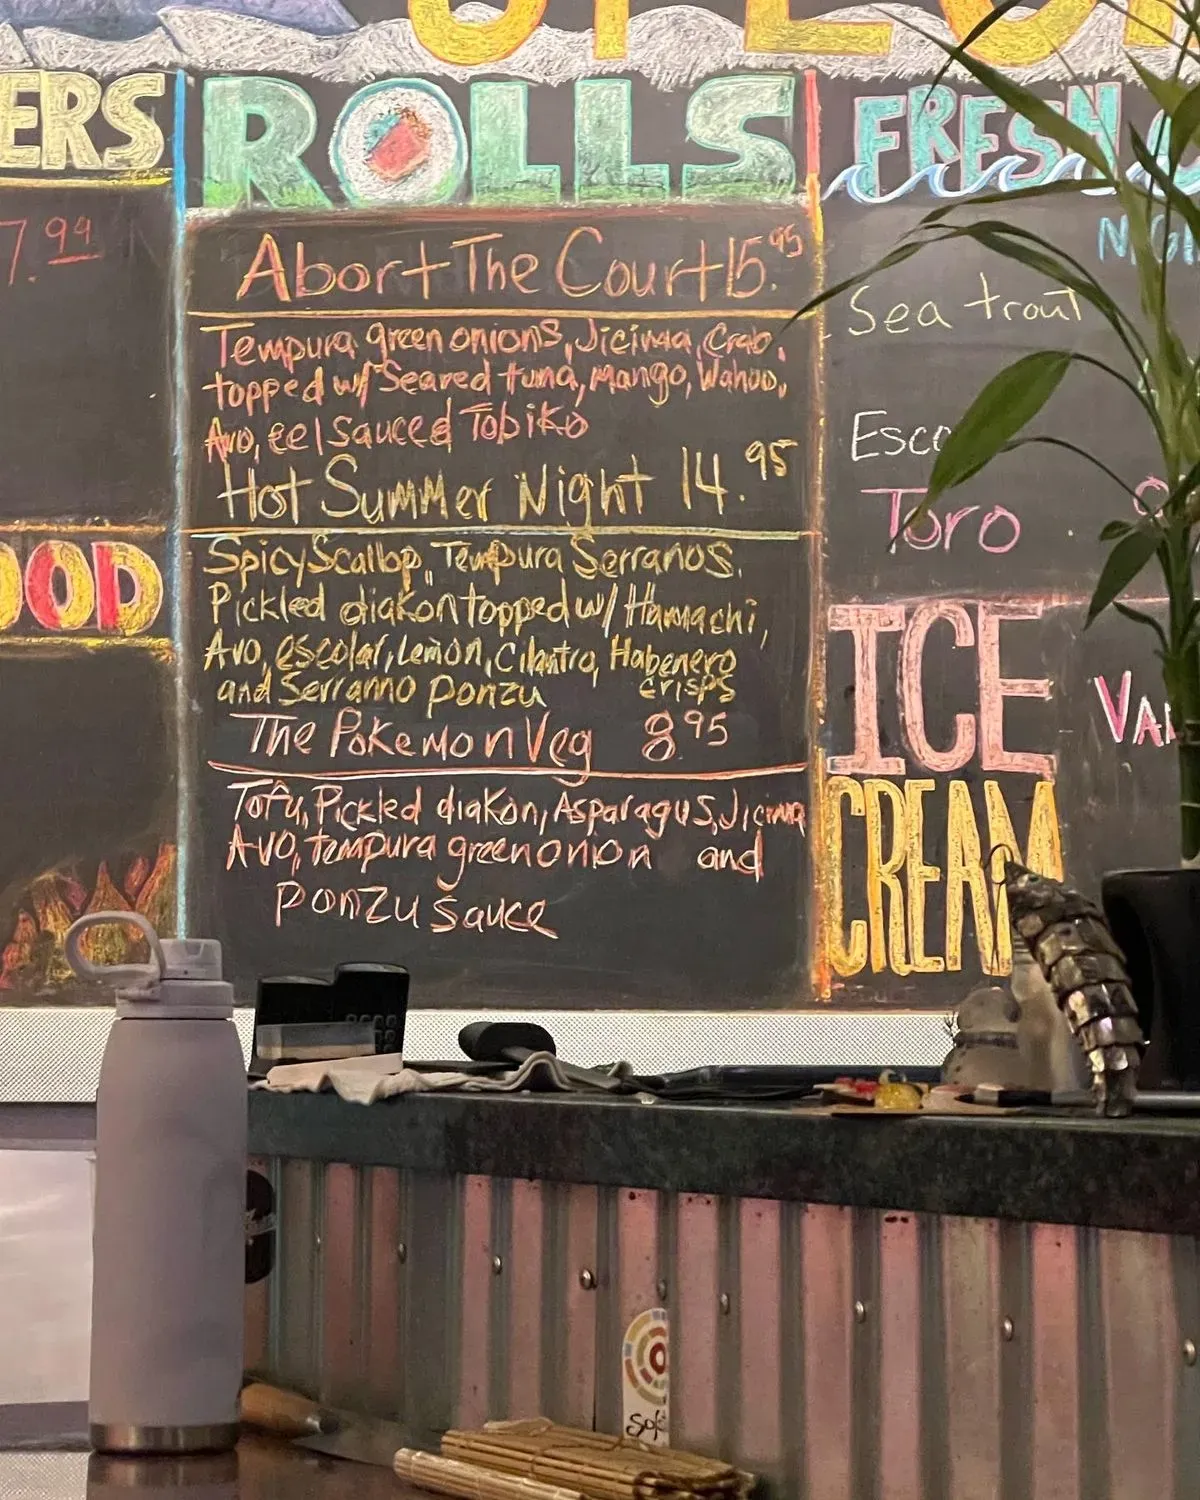 ERS
7.99
OOD
ROLLS
Abort The Court 15.95
Tempura green onions, Jicima, Crab,
topped w/ Seared tuna, Mango, Wahoo,
Avo, eel sauced Tobiko
Hot Summer Night 14.95
Spicy Scallop, Tempura Serranos,
Pickled diakon topped w/ Hamachi,
Avo, escolar, Lemon, Cilantro, Habenero
and Serranno Ponzu crisps
The Pokemon Veg 8.95
Tofu, Pickled diakon, Asparagus, Jicima
Avo, tempura green onion and
Ponzu sauce
FRESH
Sea trout
Esco
Toro
ICE
CREAM